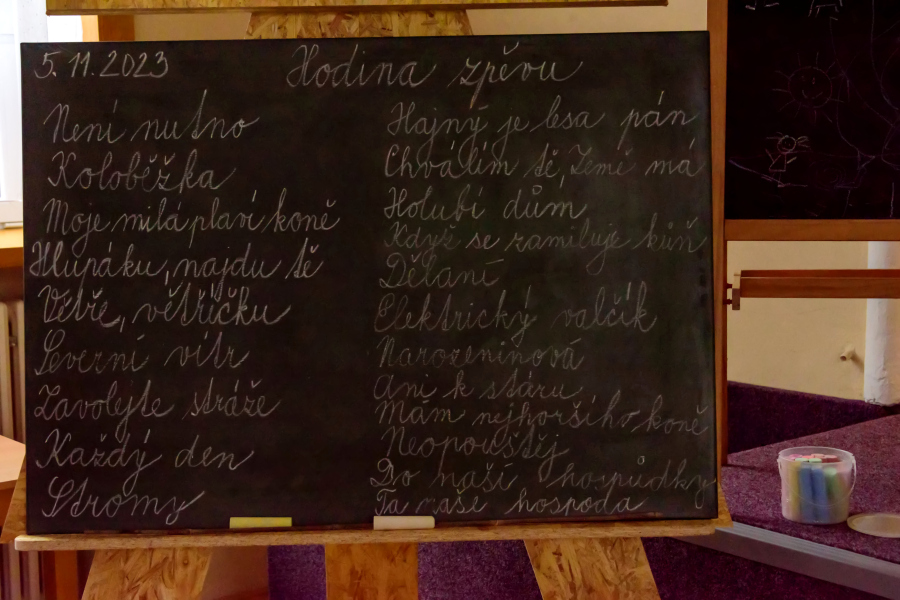 5.11.2023
Hodina zpěvu
Není nutno
Koloběžka
Moje milá plaví koně
Hlupáku, najdu tě
Větře, větříčku
Severní vítr
Zavolejte stráže
Každý den
Stromy
Hajný je lesa pán
Chválím tě, Země má
Holubí dům
Když se zamiluje kůň
Dělání
Elektrický valčík
Narozeninová
Ani k stáru
Mám nejhoršího koně
Neopouštěj
Do naší hospůdky
Ta naše hospoda